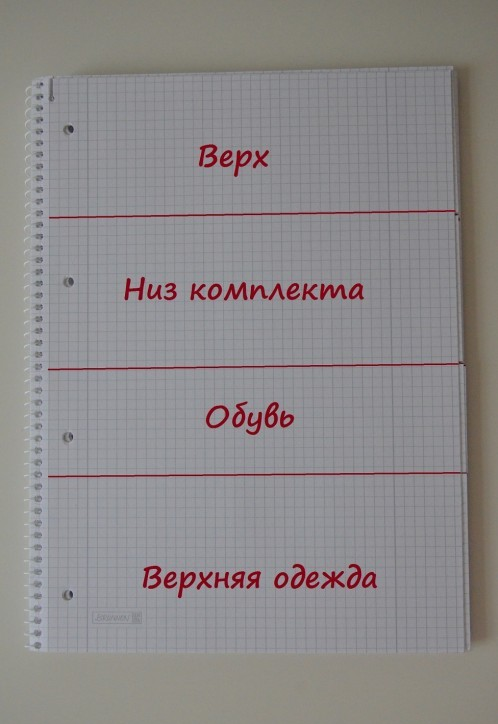 Верх
Низ комплекта
Обувь
Верхняя одежда